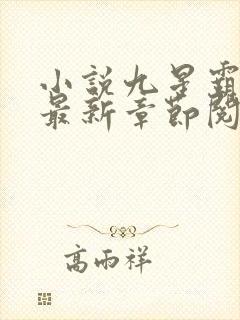 小説九星霸
最新章節閱
高雨祥